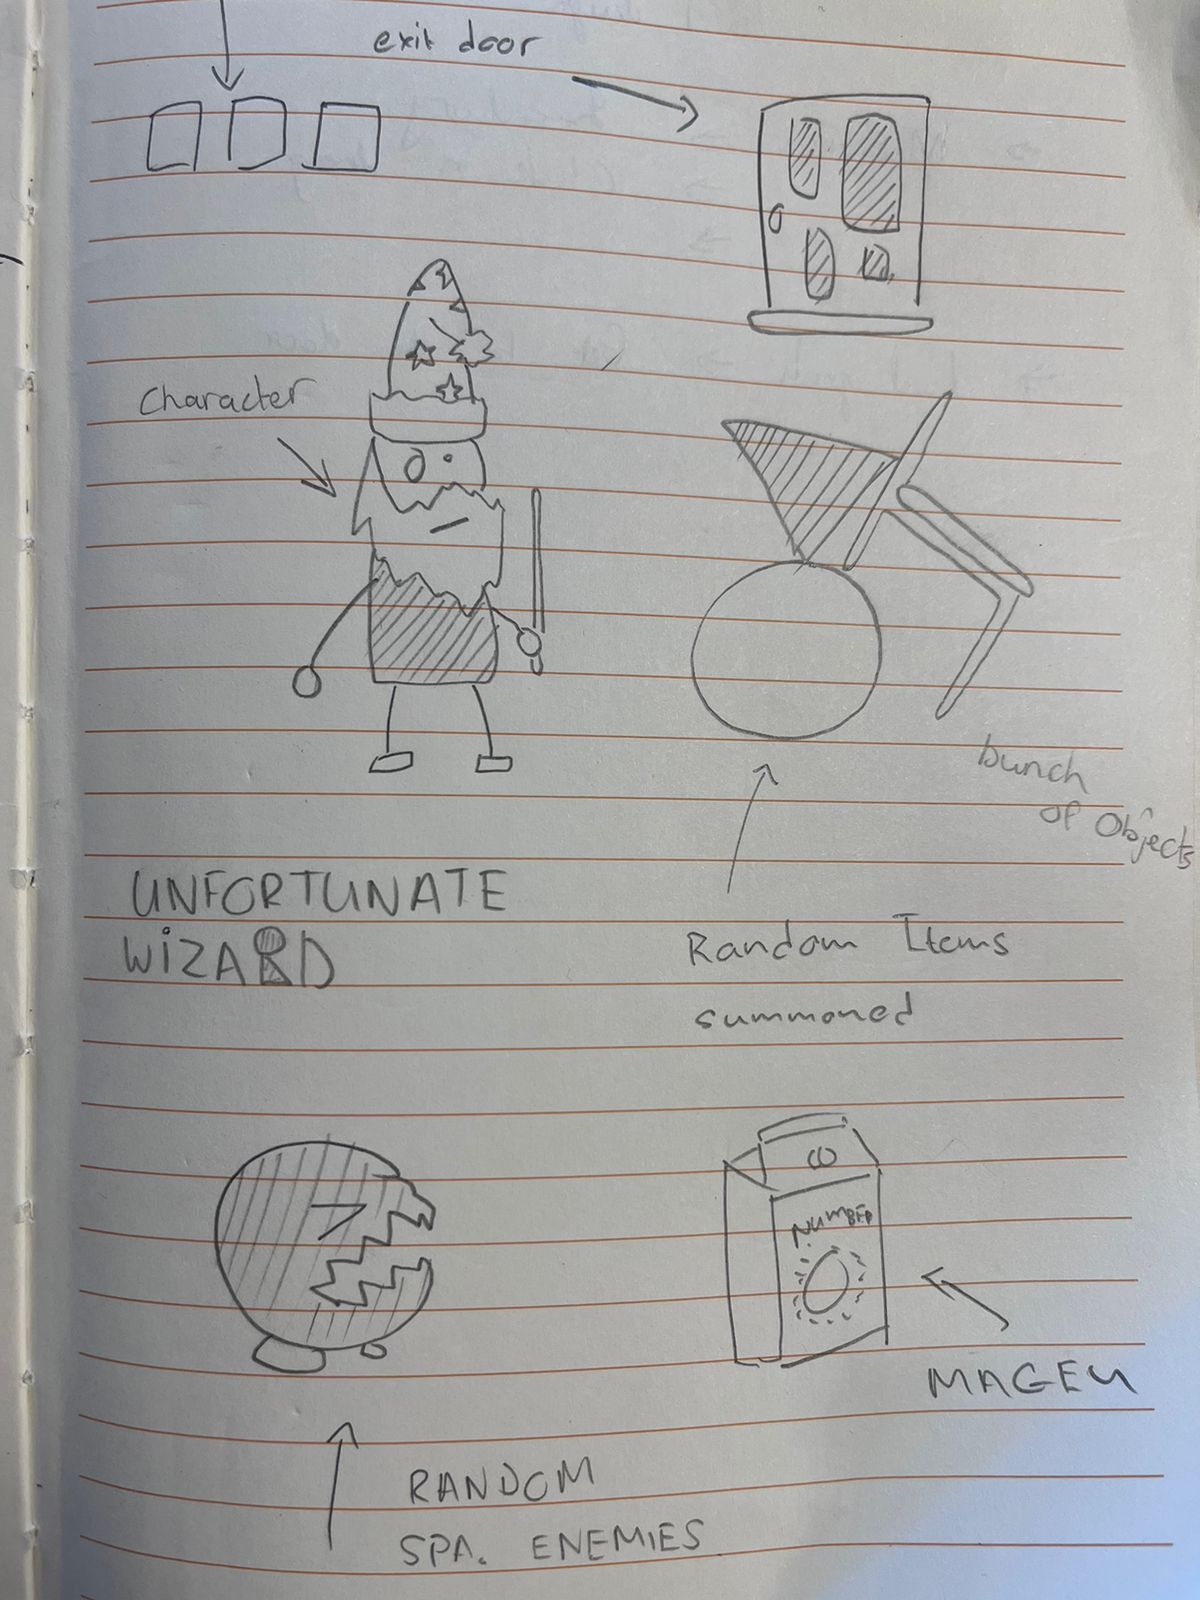 exit door
Character
bunch
of Objects
UNFORTUNATE
WiZARD
Random Items
summoned
NUMBER
MAGEU
RANDOM
SPA. ENEMIES